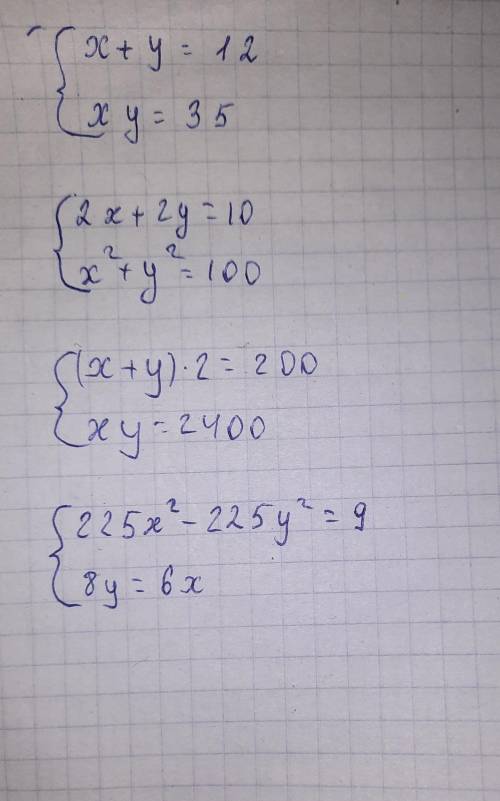 x + y = 12
xy = 35
2x + 2y = 10
x² + y² = 100
(x + y) · 2 = 200
xy = 2400
225x² - 225y² = 9
8y = 6x